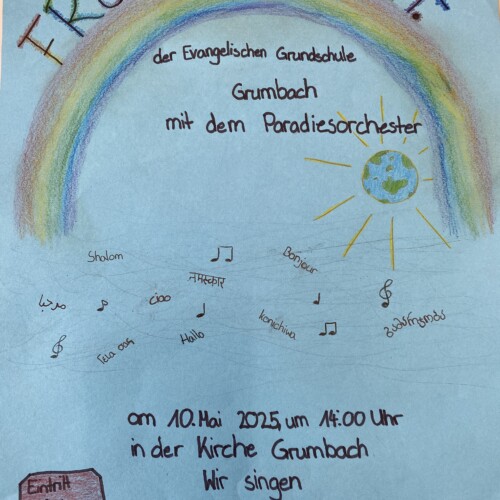 der Evangelischen Grundschule
Grumbach
mit dem Paradiesorchester
Shalom
Bonjour
नमस्कार
مرحبا
ciao
konichiwa
Hallo
Γεια σας
am 10. Mai 2025, um 14:00 Uhr
in der Kirche Grumbach
Wir singen
Eintritt